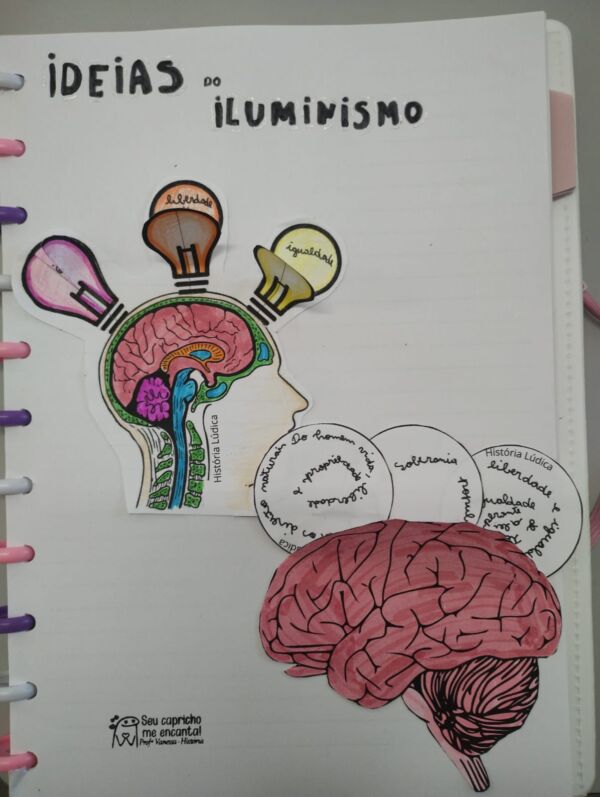 iDEiAS DO
iLUMiNiSMO
liberdade
igualdade
História Lúdica
naturais Do homem vida,
liberdade
e propriedade
Soberania
popul
História Lúdica
liberdade e igualda
Seu capricho
me encanta!
Profª Vanessa - História